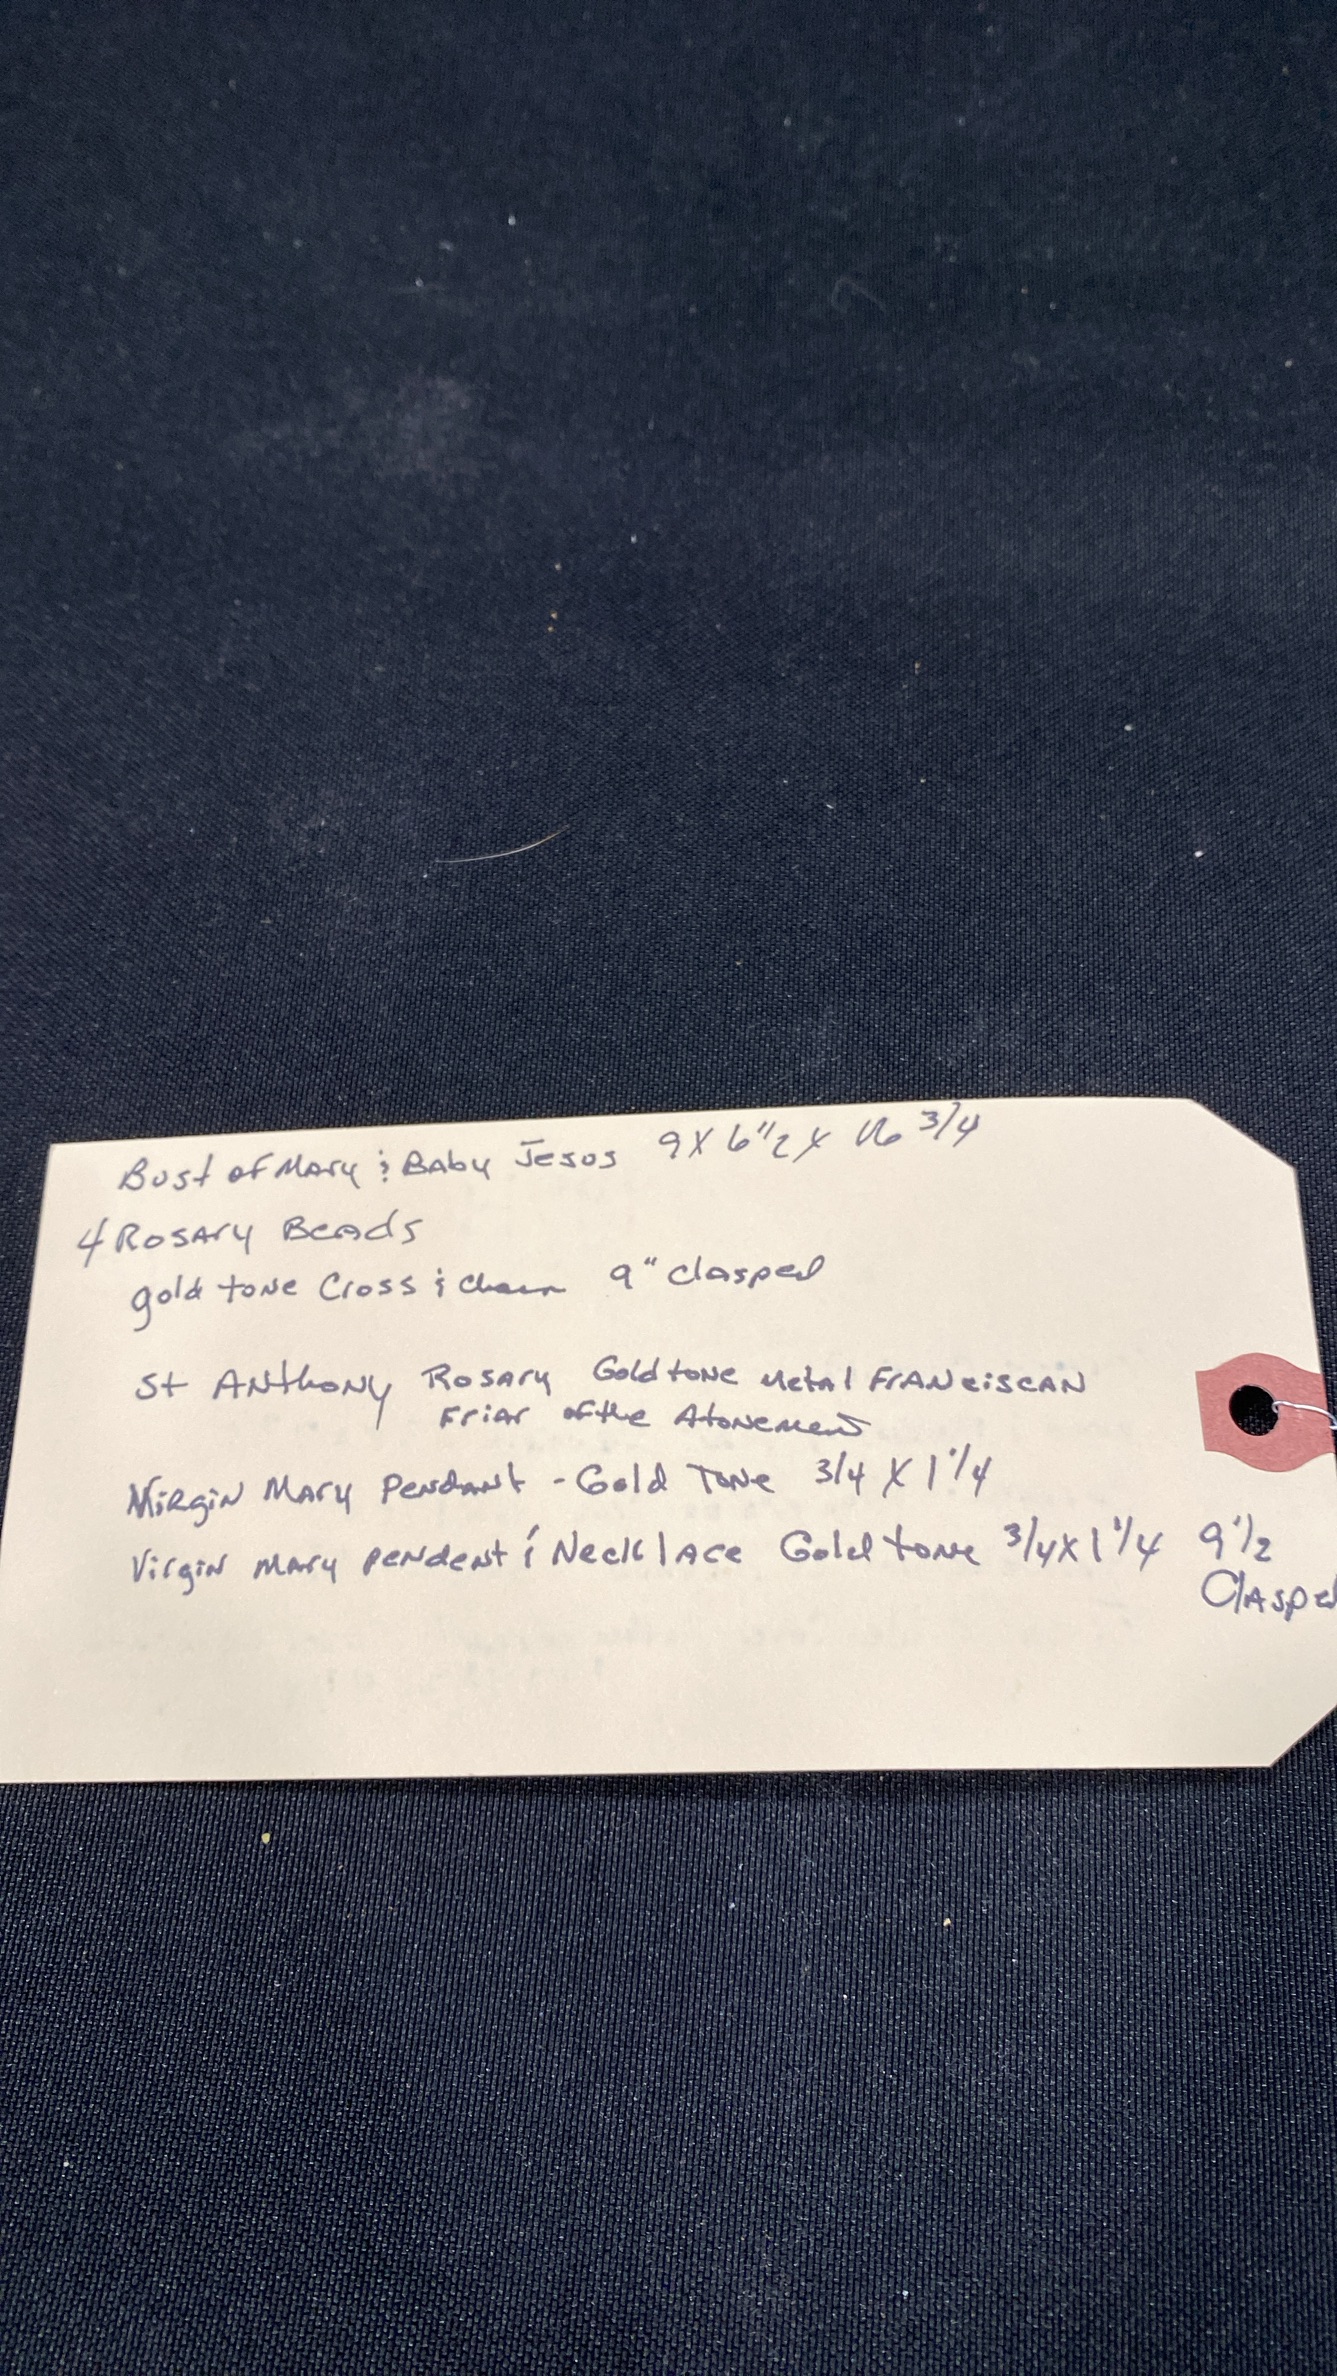 Bust of Mary & Baby Jesus 9 X 6 1/2 X 16 3/4
4 Rosary Beads
gold tone Cross & chain 9" clasped
St Anthony Rosary Goldtone Metal Franciscan
Friar of the Atonement
Virgin Mary Pendant - Gold Tone 3/4 X 1 1/4
Virgin Mary pendent & Necklace Gold tone 3/4 X 1 1/4 9 1/2
Clasped